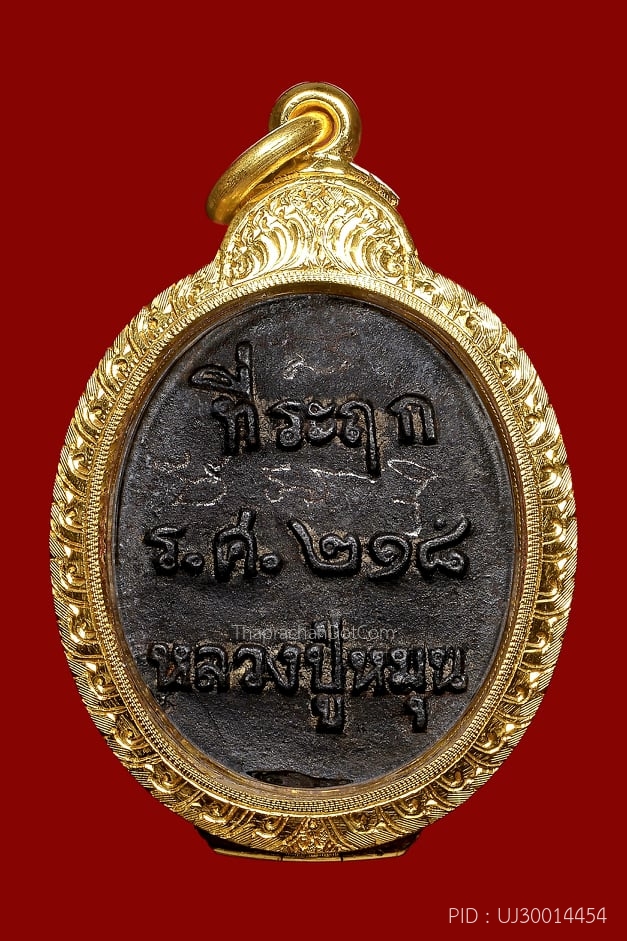 ที่ระฤก
ร.ศ. ๒๑๘
ThaprachanDotCom
หลวงปู่หมุน
PID : UJ30014454